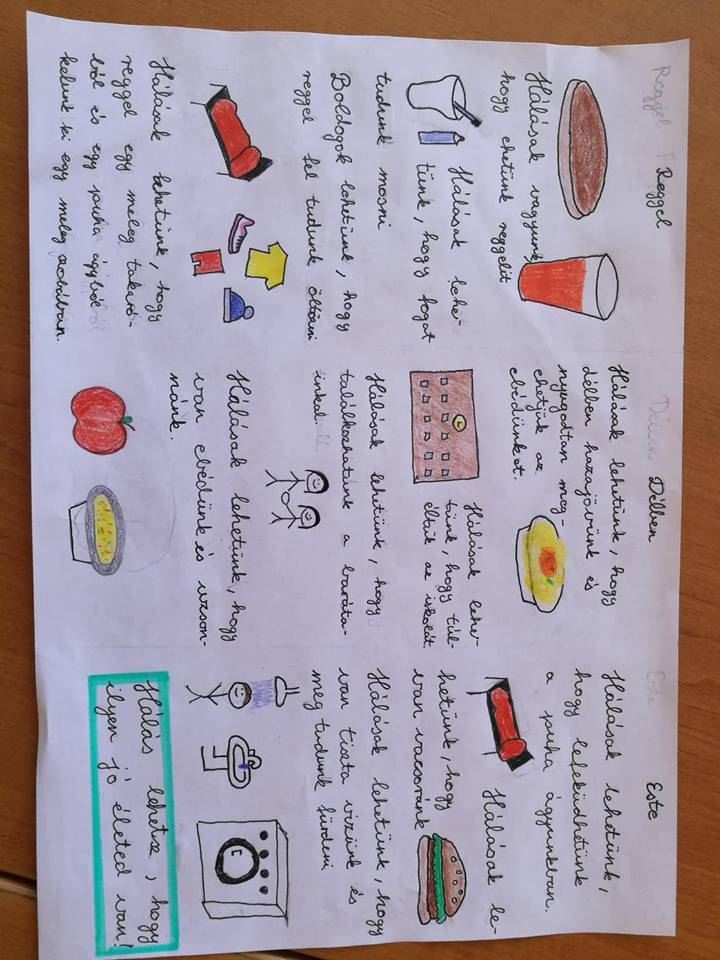 Reggel
Reggel
Hálásak vagyunk,
hogy ehetünk reggelit
Hálásak lehe-
tünk, hogy fogat
tudunk mosni
Boldogok lehetünk, hogy
reggel fel tudunk öltözni
Hálásak lehetünk, hogy
reggel egy meleg takaró-
ból és egy puha ágyból
kelünk ki egy meleg szobában.
Délben
Hálásak lehetünk, hogy
délben hazajövünk és
nyugodtan meg-
ehetjük az
ebédünket.
Hálásak lehe-
tünk, hogy túl-
éltük az iskolát.
Hálásak lehetünk, hogy
találkozhatunk a baráta-
inkal.
Hálásak lehetünk, hogy
van ebédünk és uzson-
nánk.
Este
Este
Hálásak lehetünk,
hogy lefeküdhetünk
a puha ágyunkban.
Hálásak le-
hetünk, hogy
van vacsoránk
Hálásak lehetünk, hogy
van tiszta vizünk és
meg tudunk fürdeni
Hálás lehetsz, hogy
ilyen jó életed van!